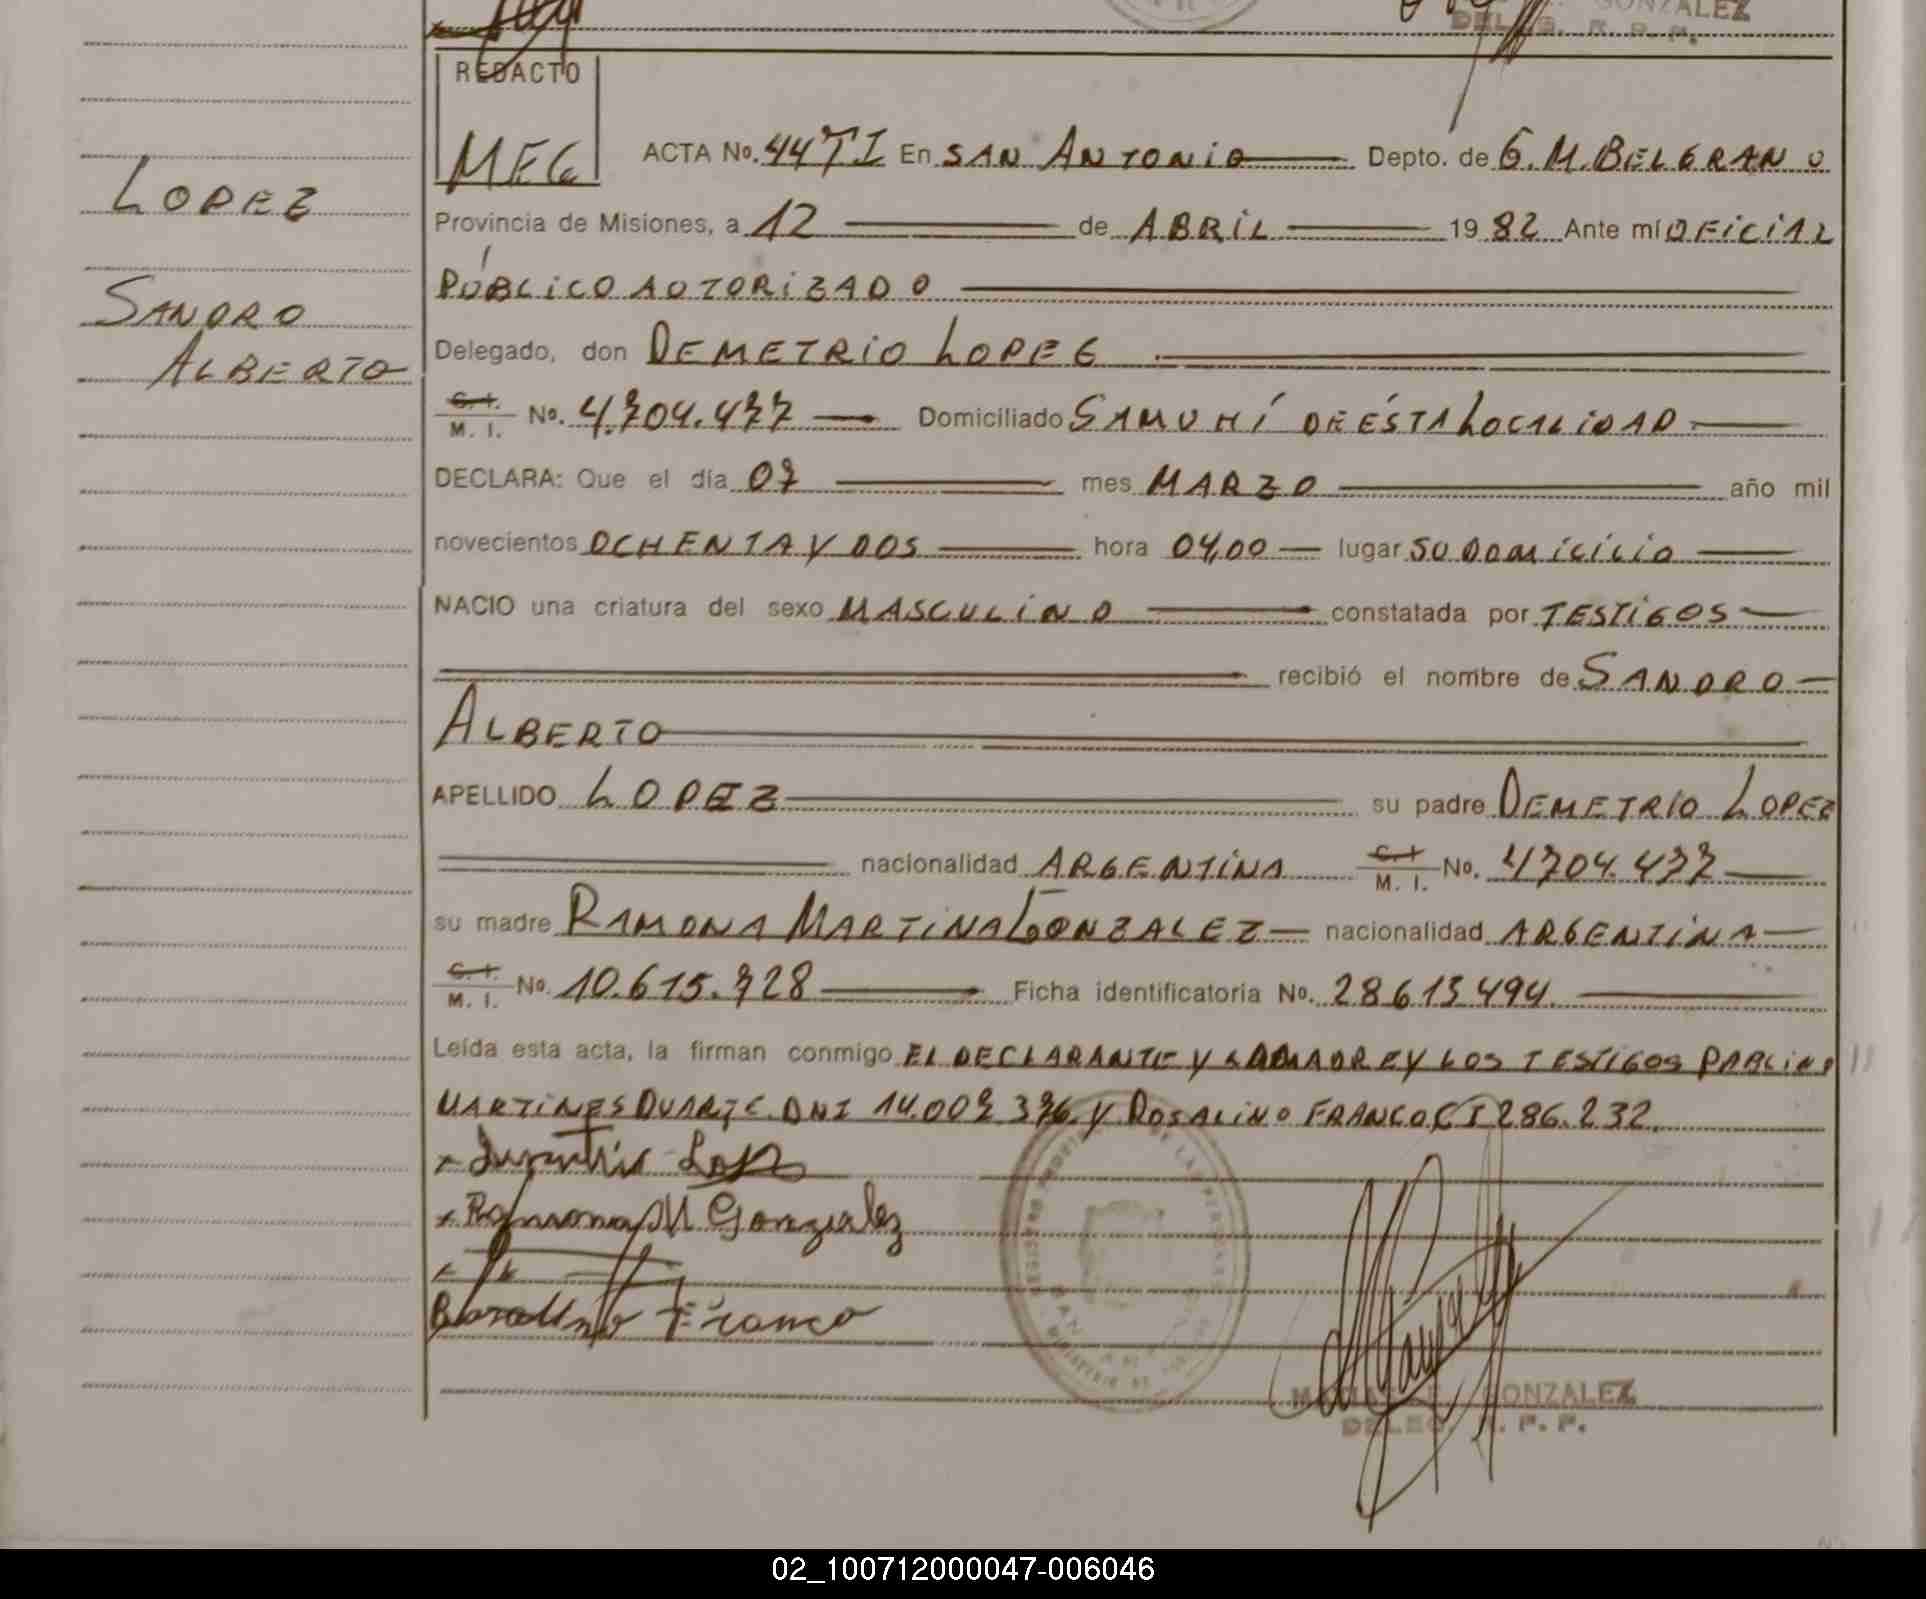 GONZALEZ
DELEG. R. P. P.
REDACTO
MEG
ACTA No. 44 TI En SAN ANTONIO Depto. de G. M. BELGRANO
LOPEZ
Provincia de Misiones, a 12 de ABRIL 1982 Ante mí OFICIAL
PÚBLICO AUTORIZADO
SANDRO
ALBERTO
Delegado, don DEMETRIO LOPEZ
C. I.
M. I. No. 4.704.477 Domiciliado SAMUHÍ DE ÉSTA LOCALIDAD
DECLARA: Que el día 07 mes MARZO año mil
novecientos OCHENTA Y DOS hora 04,00 lugar SU DOMICILIO
NACIO una criatura del sexo MASCULINO constatada por TESTIGOS
recibió el nombre de SANDRO
ALBERTO
APELLIDO LOPEZ su padre DEMETRIO LOPEZ
nacionalidad ARGENTINA C. I. M. I. No. 4704.477
su madre RAMONA MARTINA GONZALEZ nacionalidad ARGENTINA
C. I.
M. I. No. 10.615.728 Ficha identificatoria No. 28613494
Leída esta acta, la firman conmigo EL DECLARANTE Y LA MADRE Y LOS TESTIGOS PABLINO
MARTINES DUARTE DNI 14.007.376 Y ROSALINO FRANCO CI 286.232
Ramona M Gonzalez
Franco
GONZALEZ
DELEG. R. P. P.
02_100712000047-006046